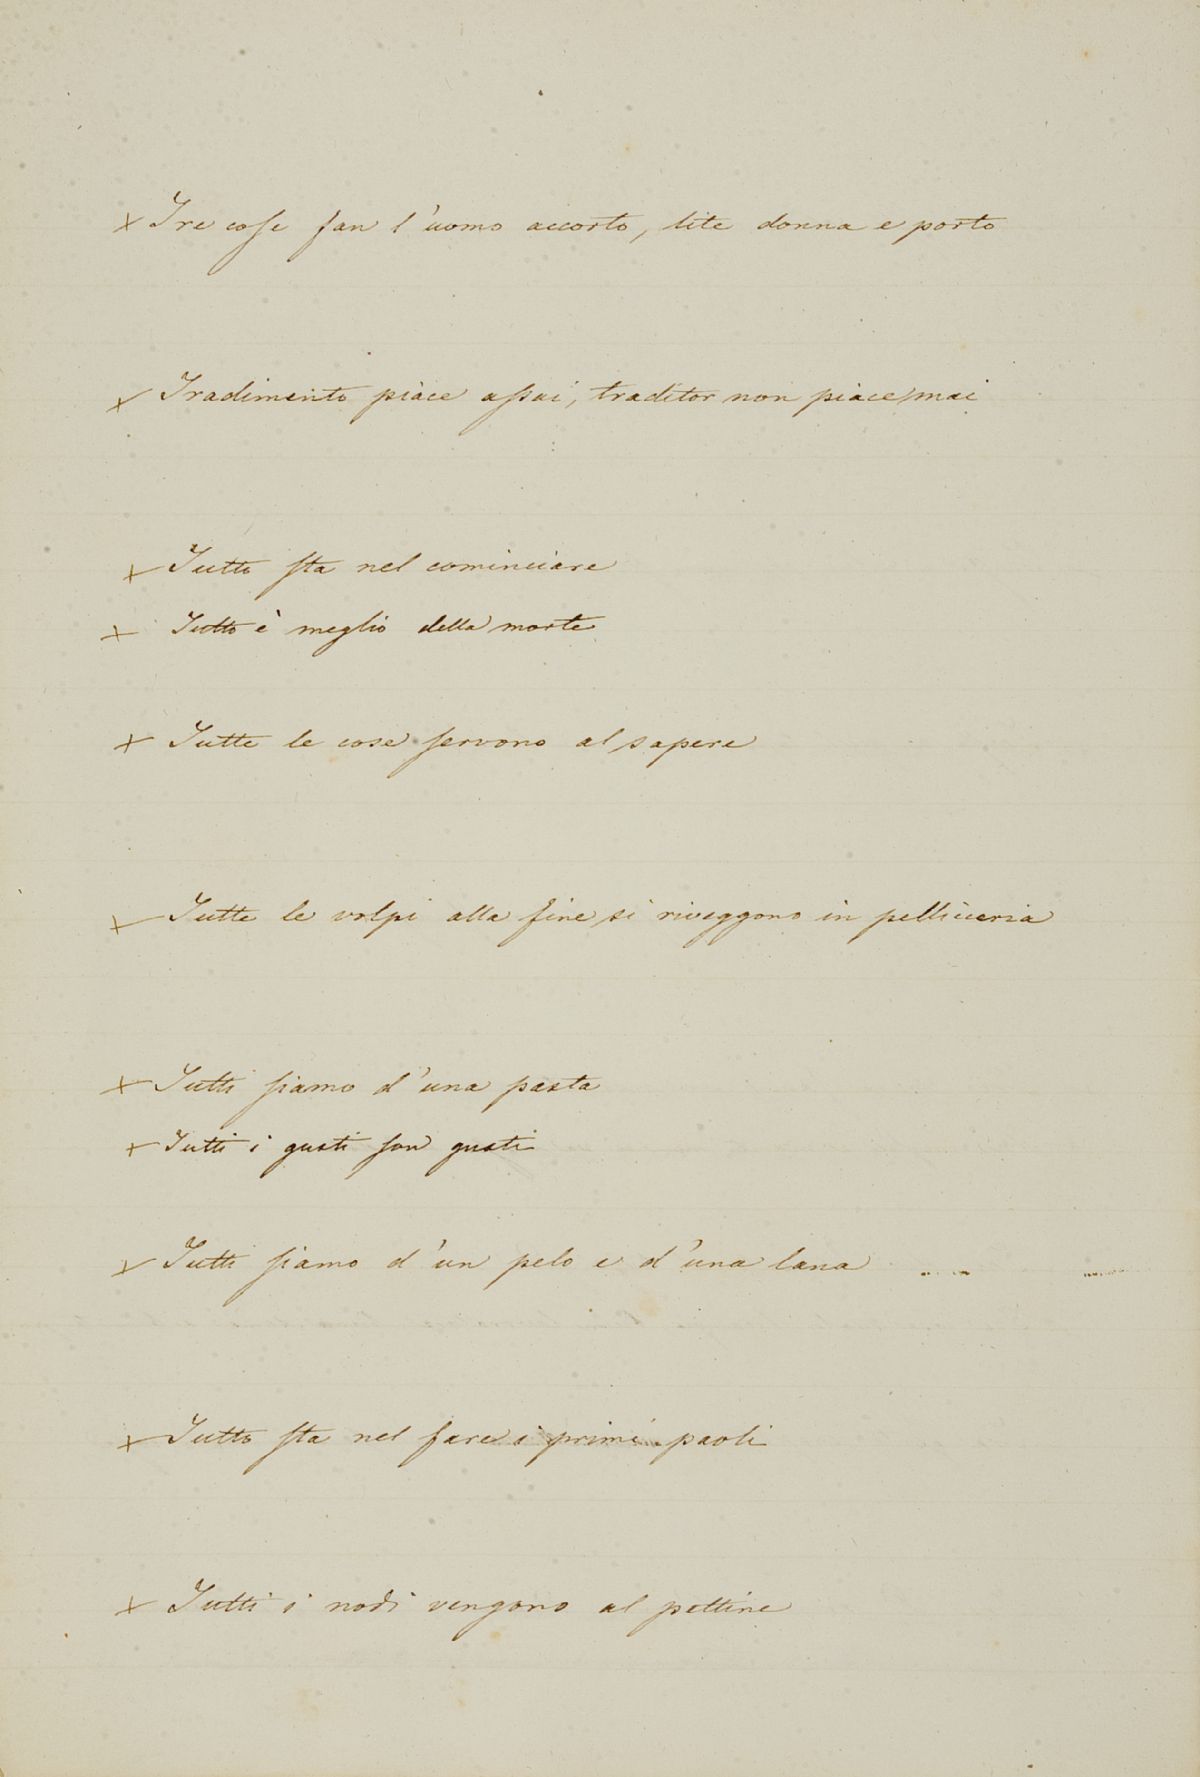 × Tre cose fan l'uomo accorto, lite donna e porto
× Tradimento piace assai, traditor non piace mai
× Tutto sta nel cominciare
× Tutto è meglio della morte
× Tutte le cose servono al sapere
× Tutte le volpi alla fine si riveggono in pellicceria
× Tutti siamo d'una pasta
× Tutti i gusti son gusti
× Tutti siamo d'un pelo e d'una lana
× Tutto sta nel fare i primi paoli
× Tutti i nodi vengono al pettine